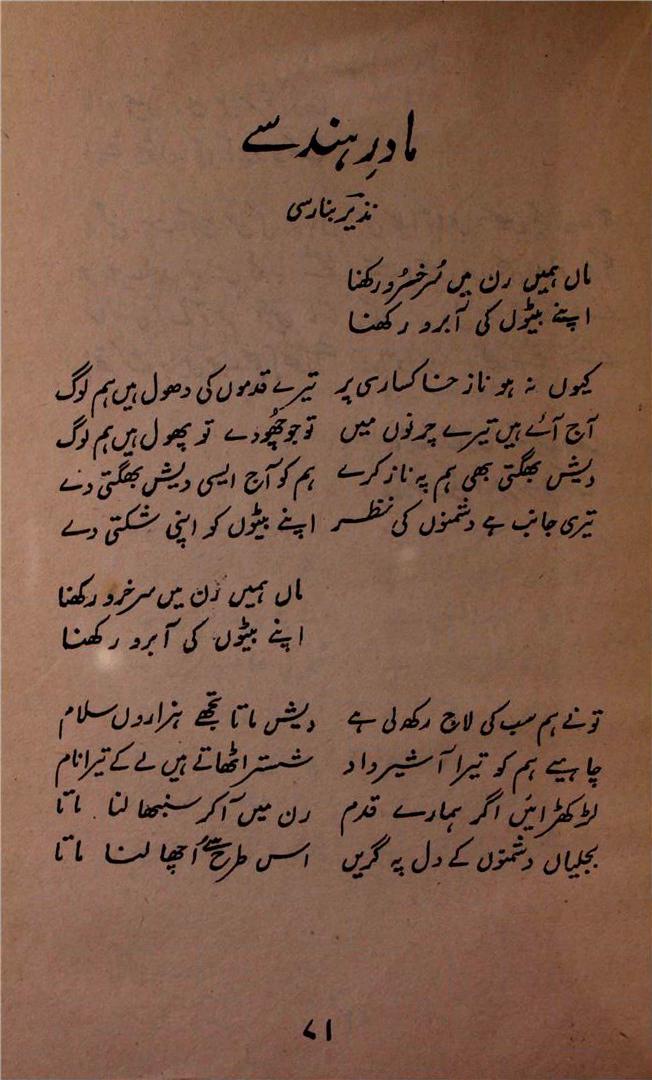 مادرِ ہند سے
نذیرؔ بنارسی
ماں ہمیں رن میں سُرخرُو رکھنا
اپنے بیٹوں کی آبرو رکھنا
کیوں نہ ہو ناز خاکساری پر تیرے قدموں کی دھول ہیں ہم لوگ
آج آئے ہیں تیرے چرنوں میں تو جو چھُودے تو پھول ہیں ہم لوگ
دیش بھگتی بھی ہم پہ ناز کرے ہم کو آج ایسی دیش بھگتی دے
تیری جانب ہے دشمنوں کی نظر اپنے بیٹوں کو اپنی شکتی دے
ماں ہمیں رَن میں سرخرو رکھنا
اپنے بیٹوں کی آبرو رکھنا
تو نے ہم سب کی لاج رکھ لی ہے دیش ماتا تجھے ہزاروں سلام
چاہیے ہم کو تیرا آشیرواد شستر اٹھاتے ہیں لے کے تیرا نام
لڑکھڑائیں اگر ہمارے قدم رن میں آ کر سنبھالنا ماتا
بجلیاں دشمنوں کے دل پہ گریں اس طرح سے اُچھالنا ماتا
۷۱